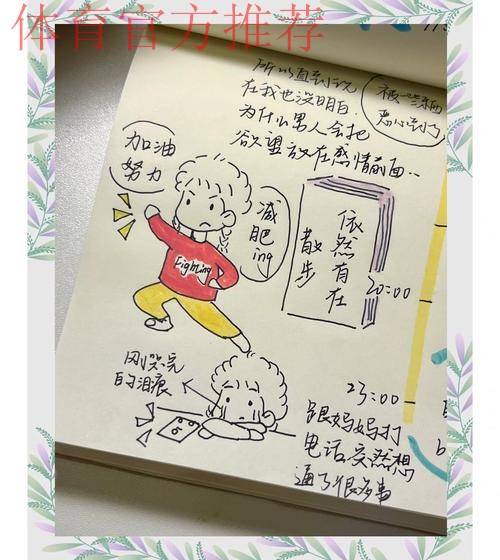 体育官方推荐
所以直到现
在我也没明白
为什么男人会把
欲望放在感情前面..
被
恶心到了
加油
努力
减肥ing
Fighting
依然有在
散步
20:00
刚哭完
的泪痕
23:00
跟妈妈打
电话,突然想
通了很多事